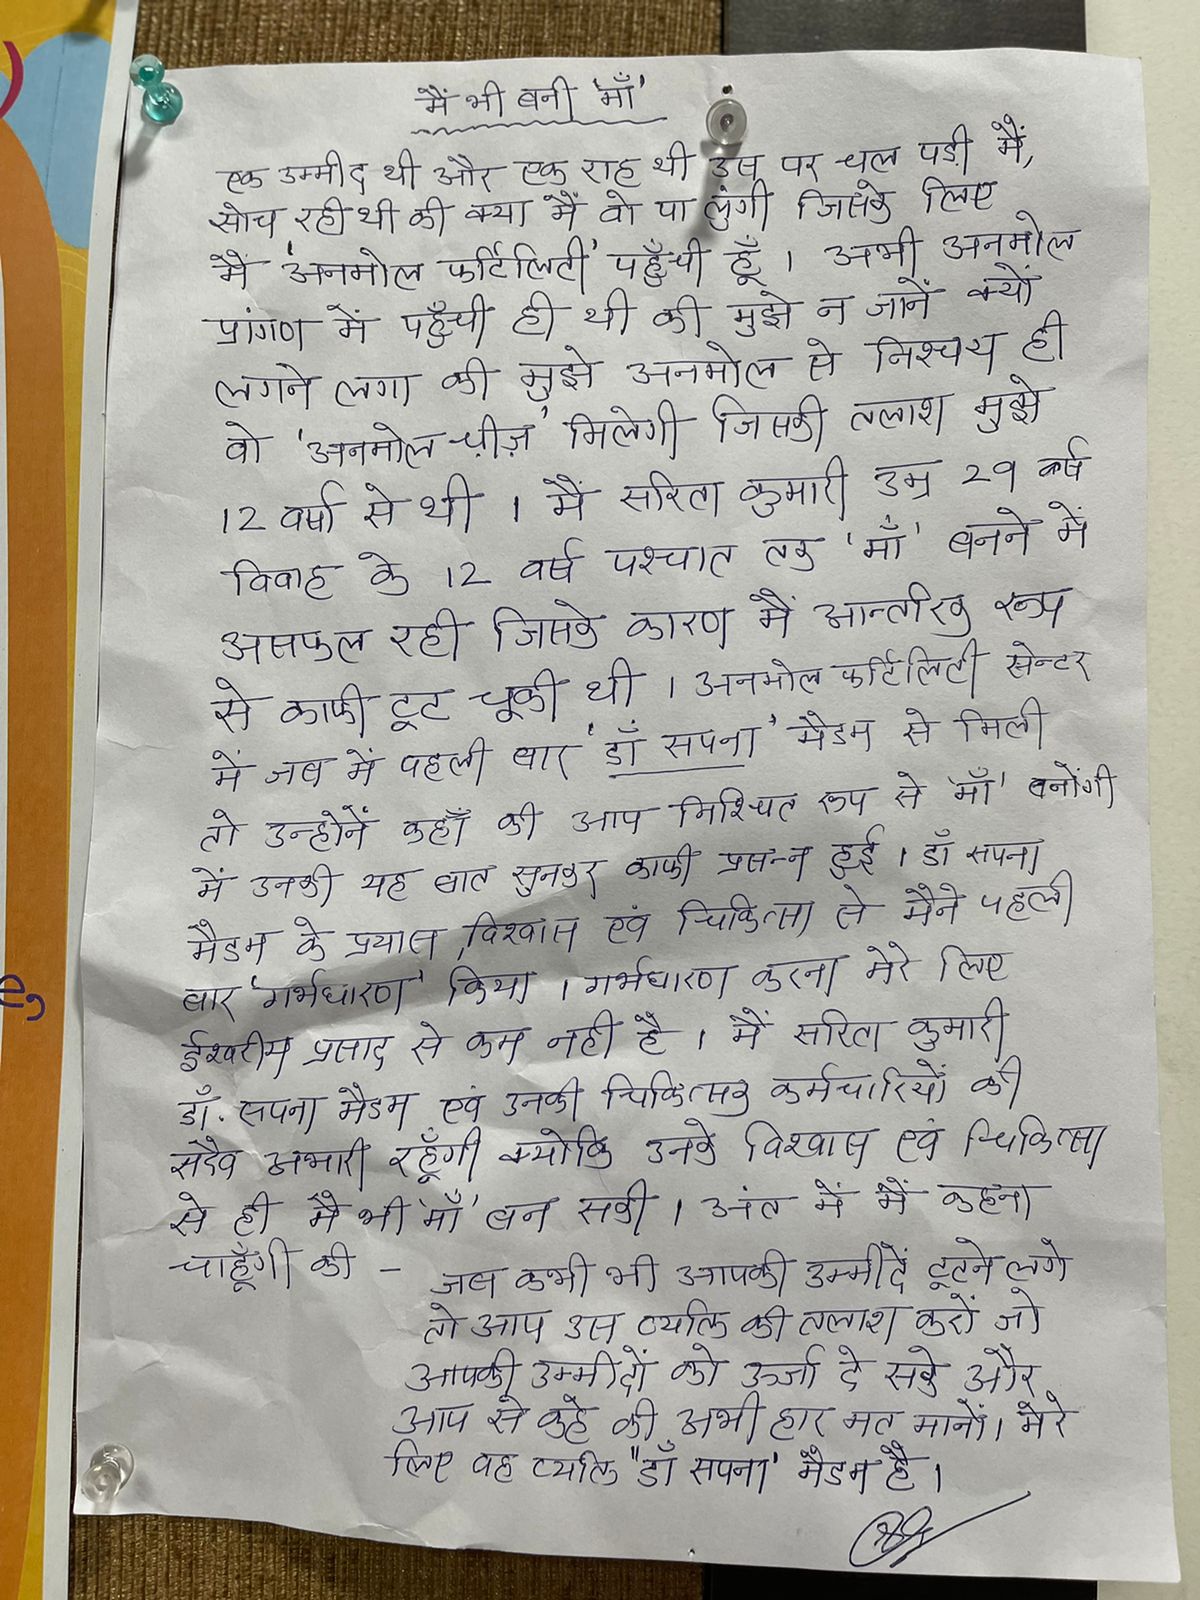 मैं भी बनी 'माँ'
एक उम्मीद थी और एक राह थी उस पर चल पड़ी मैं,
सोच रही थी की क्या मैं वो पा लुंगी जिसके लिए
मैं 'अनमोल फर्टिलिटी' पहुँची हूँ । अभी अनमोल
प्रांगण में पहुँची ही थी की मुझे न जानें क्यों
लगने लगा की मुझे अनमोल से निश्चय ही
वो 'अनमोल चीज़' मिलेगी जिसकी तलाश मुझे
12 वर्षो से थी । मैं सरिता कुमारी उम्र 29 वर्ष
विवाह के 12 वर्ष पश्चात तक 'माँ' बनने में
असफल रही जिसके कारण मैं आन्तरिक रूप
से काफी टूट चूकी थी । अनमोल फर्टिलिटी सेन्टर
में जब में पहली बार 'डॉ सपना' मैडम से मिली
तो उन्होनें कहाँ की आप निश्चित रूप से 'माँ' बनोंगी
में उनकी यह बात सुनकर काफी प्रसन्न हुई । डॉ सपना
मैडम के प्रयास, विश्वास एवं चिकित्सा से मैने पहली
बार 'गर्भधारण' किया । गर्भधारण करना मेरे लिए
ईश्वरीय प्रसाद से कम नही है । मैं सरिता कुमारी
डॉ. सपना मैडम एवं उनकी चिकित्सक कर्मचारियों की
सदैव अभारी रहूँगी क्योकि उनके विश्वास एवं चिकित्सा
से ही मै भी 'माँ' बन सकी । अंत में मैं कहना
चाहूँगी की -
जब कभी भी आपकी उम्मीदें टूटने लगे
तो आप उस व्यक्ति की तलाश करों जो
आपकी उम्मीदों को ऊर्जा दे सके और
आप से कहे की अभी हार मत मानों। मेरे
लिए वह व्यक्ति "डॉ सपना' मैडम है ।